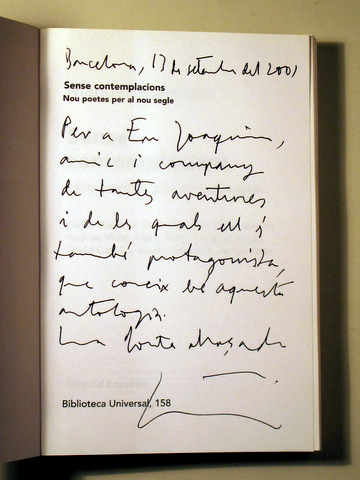 Barcelona, 13 de setembre del 2001
Sense contemplacions
Nou poetes per al nou segle
Per a En Joaquim,
amic i company
de tantes aventures
i de les quals ell és
també protagonista,
que coneix bé aquesta
antologia.
Una forta abraçada
Biblioteca Universal, 158